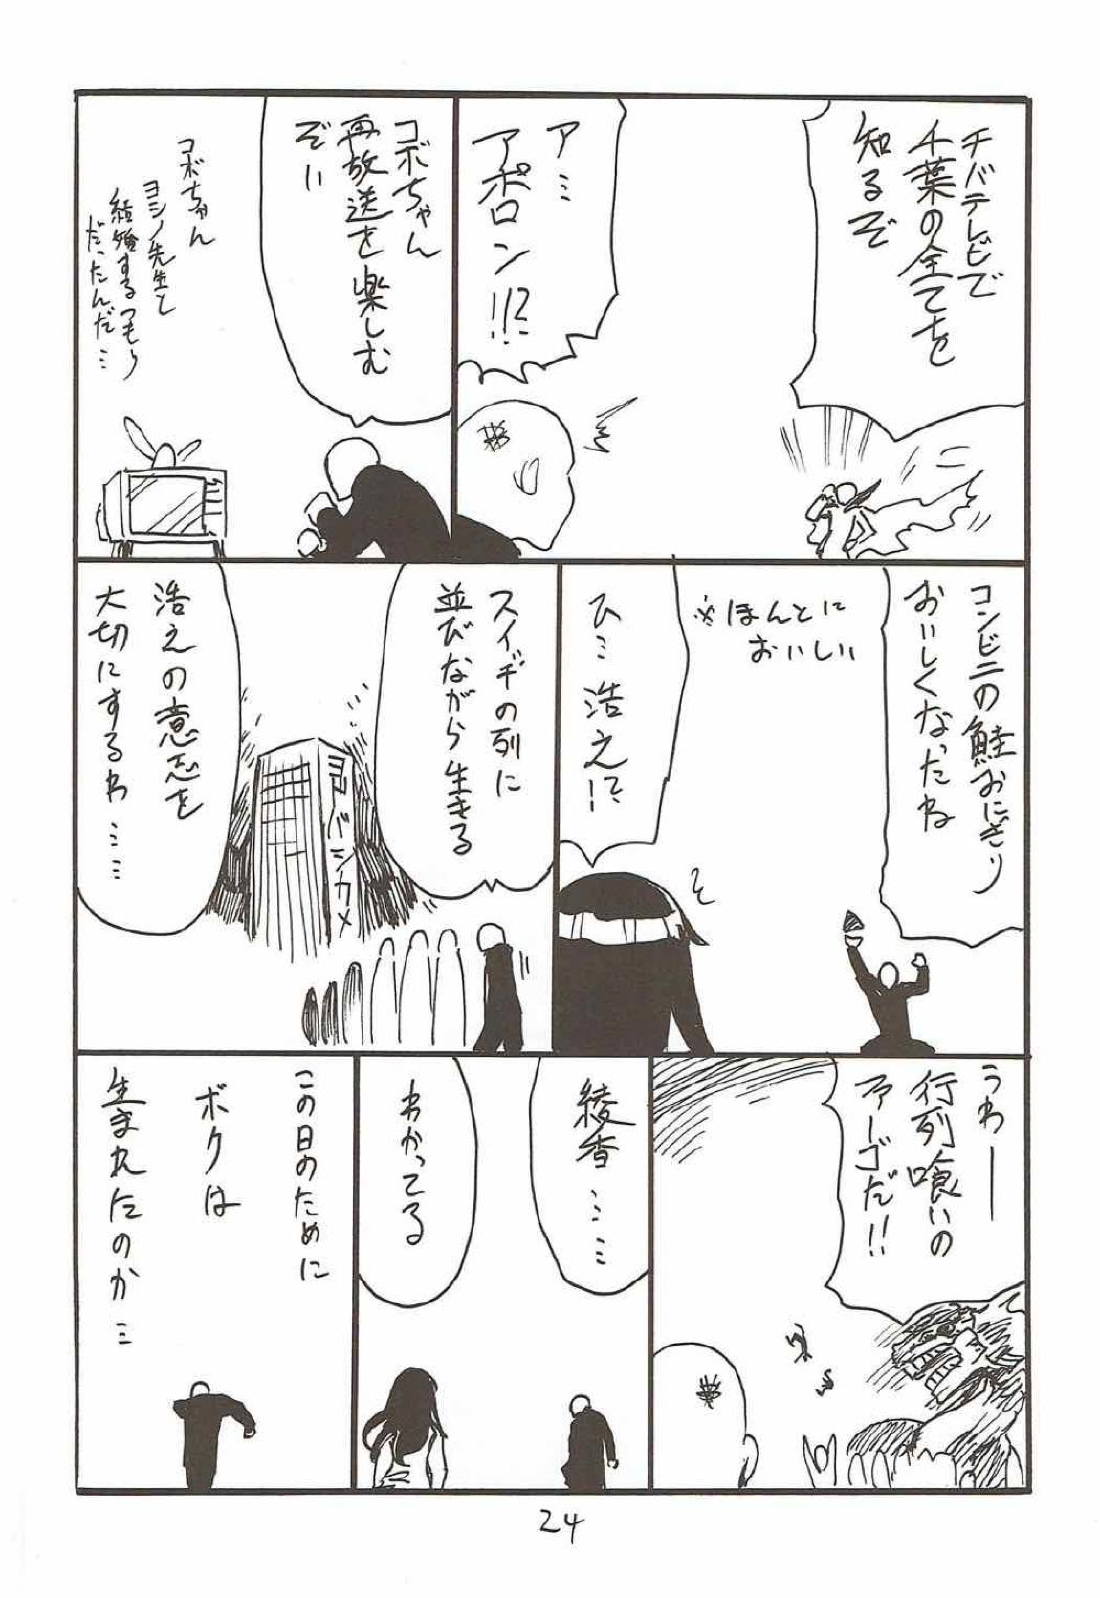 チバテレビで
千葉の全てを
知るぞ
ア…
アポロン!!?
コボちゃん
再放送を楽しむ
ぞい
コボちゃん
ヨシノ先生と
結婚するつもり
だったんだ…
コンビニの鮭おにぎり
おいしくなったね
※ほんとに
おいしい
ひ… 浩之!?
スイッチの列に
並びながら生きる
ヨドバシカメ
浩之の意志を
大切にするわ……
うわー
行列喰いの
ファーゴだ!!
綾香……
わかってる
この日のために
ボクは
生まれたのか…
24